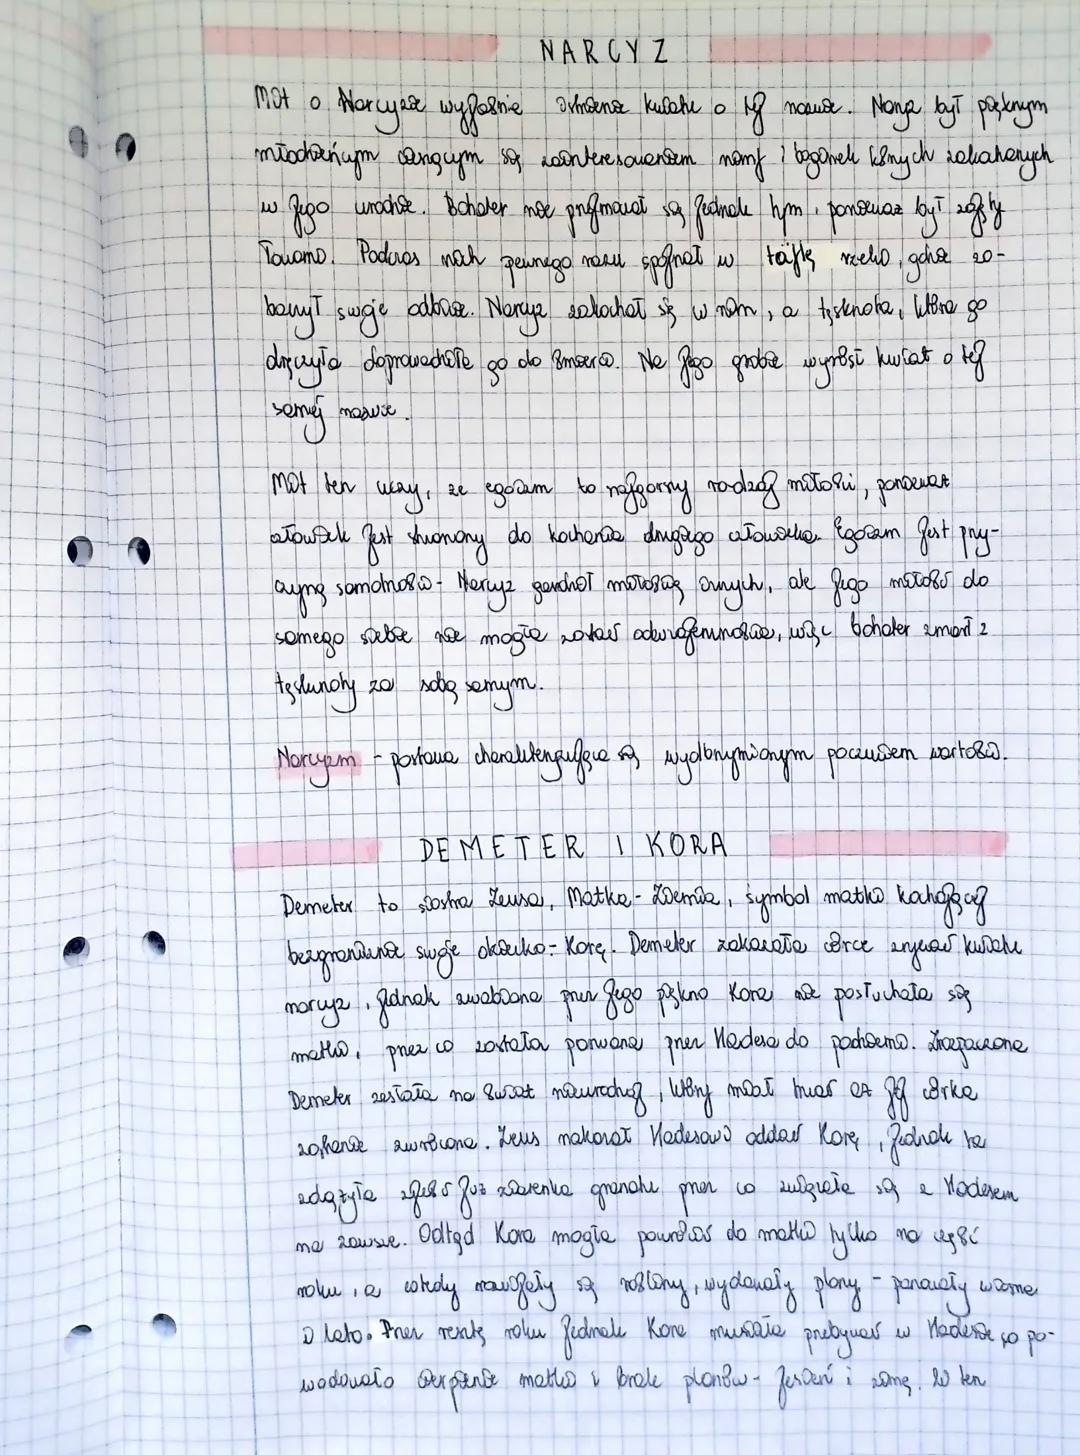 NARCYZ
Mit o Narcyzie wyjaśnia istnienie kwiatu o tej nazwie. Narcyz był pięknym
młodzieńcem cieszącym się zainteresowaniem nimf i bogiń których zakochanych
w jego urodzie. Bohater nie przejmował się jednak tym, ponieważ był zajęty
łowami. Podczas nich pewnego razu spojrzał w taflę rzeki, gdzie zo-
baczył swoje odbicie. Narcyz zakochał się w nim, a tęsknota, która go
dręczyła doprowadziła go do śmierci. Na jego grobie wyrósł kwiat o tej
samej nazwie.
Mit ten uczy, że egoizm to najgorszy rodzaj miłości, ponieważ
człowiek jest stworzony do kochania drugiego człowieka. Egoizm jest przy-
czyną samotności - Narcyz gardził miłością innych, ale jego miłość do
samego siebie nie mogła zostać odwzajemniona, więc bohater zmarł z
tęsknoty za sobą samym.
Narcyzm - postawa charakteryzująca się wyolbrzymionym poczuciem wartości.
DEMETER I KORA
Demeter to siostra Zeusa, Matka - Ziemia, symbol matki kochającej
bezgranicznie swoje dziecko - Korę. Demeter zakazała córce zrywać kwiatu
narcyz, jednak zwabiona przez jego piękno Kora nie posłuchała się
matki, przez co została porwana przez Hadesa do podziemi. Zrozpaczona
Demeter zesłała na świat nieurodzaj, który miał trwać aż jej córka
zostanie zwrócona. Zeus nakazał Hadesowi oddać Korę, jednak ta
zdążyła zjeść już ziarenka granatu przez co związała się z Hadesem
na zawsze. Odtąd Kora mogła powrócić do matki tylko na część
roku, a wtedy rozwijały się rośliny, wydawały plony - panowały wiosna
i lato. Przez resztę roku jednak Kora musiała przebywać w Hadesie co po-
wodowało cierpienie matki i brak plonów - jesień i zimę. W ten